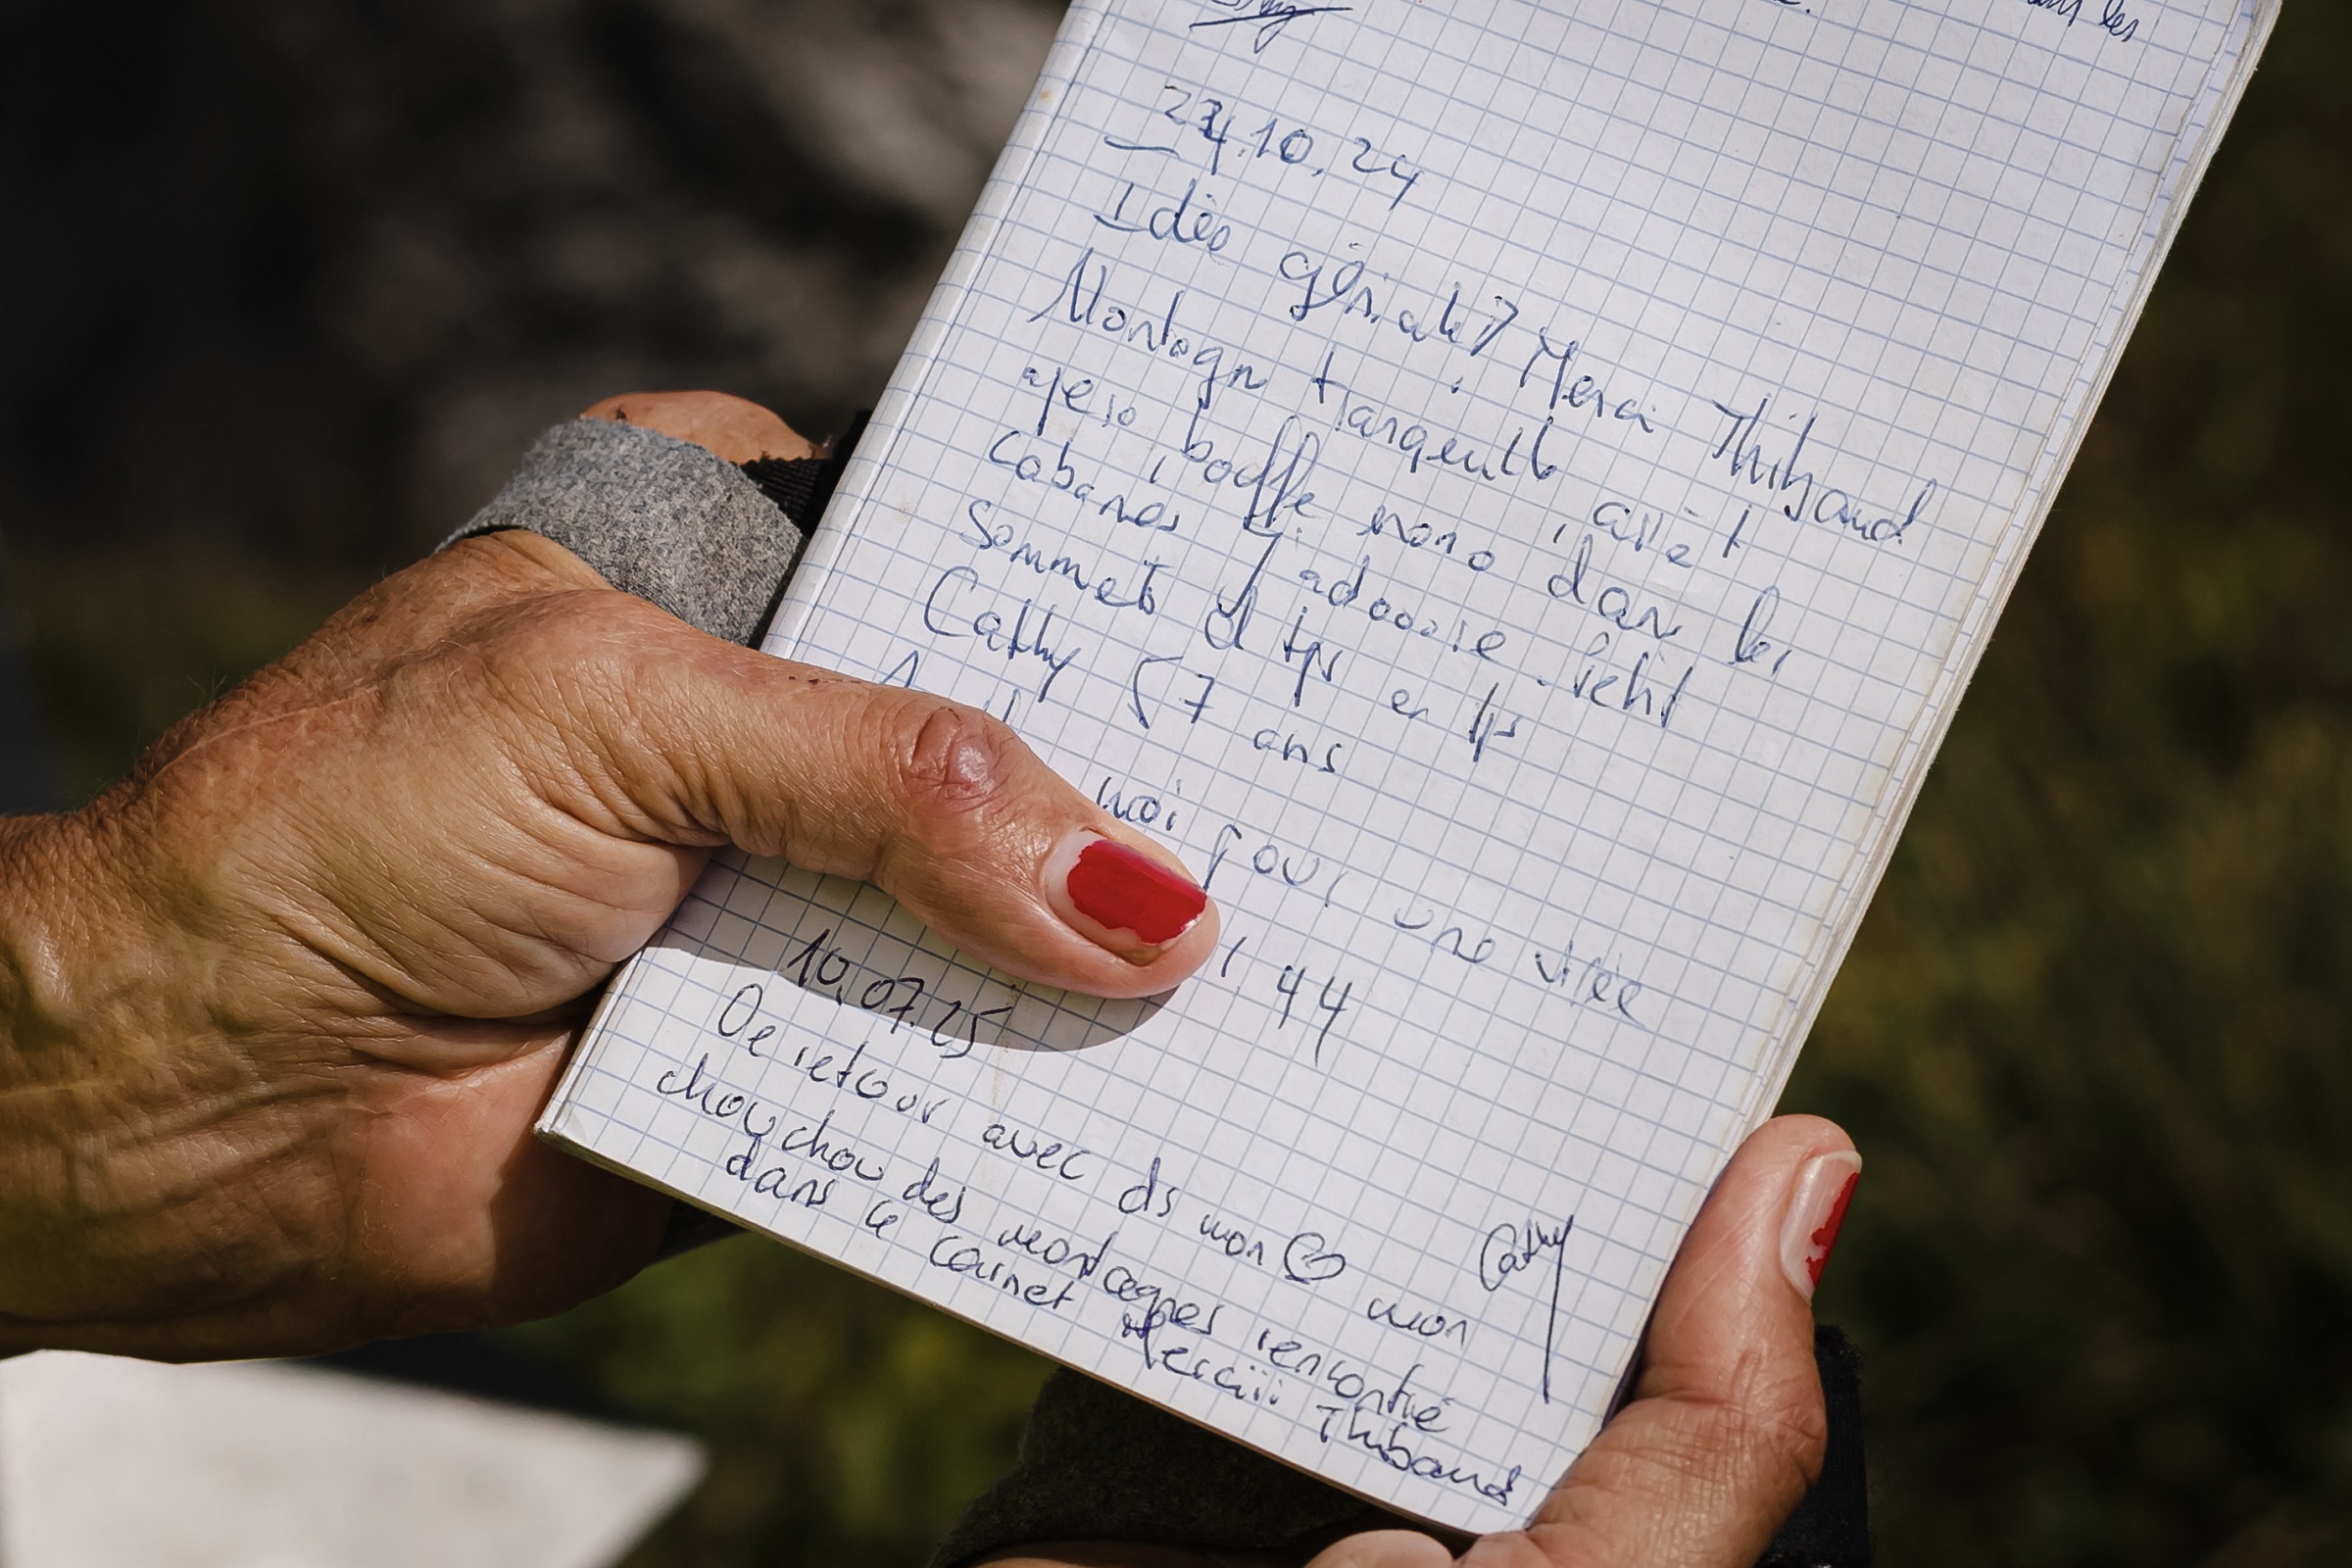 les
24.10.24
Idée géniale !! Merci Thibaud
Montagn tranquille, arrêt
apero, bouffe, nono dans les
cabanes j'adooore. Petit
sommets d tps en tps
Cathy 57 ans
moi pour une virée
44
10.07.25
De retour avec ds mon ♡ mon
chouchou des montagnes rencontré
dans le carnet Merciii Thibaud
Cathy